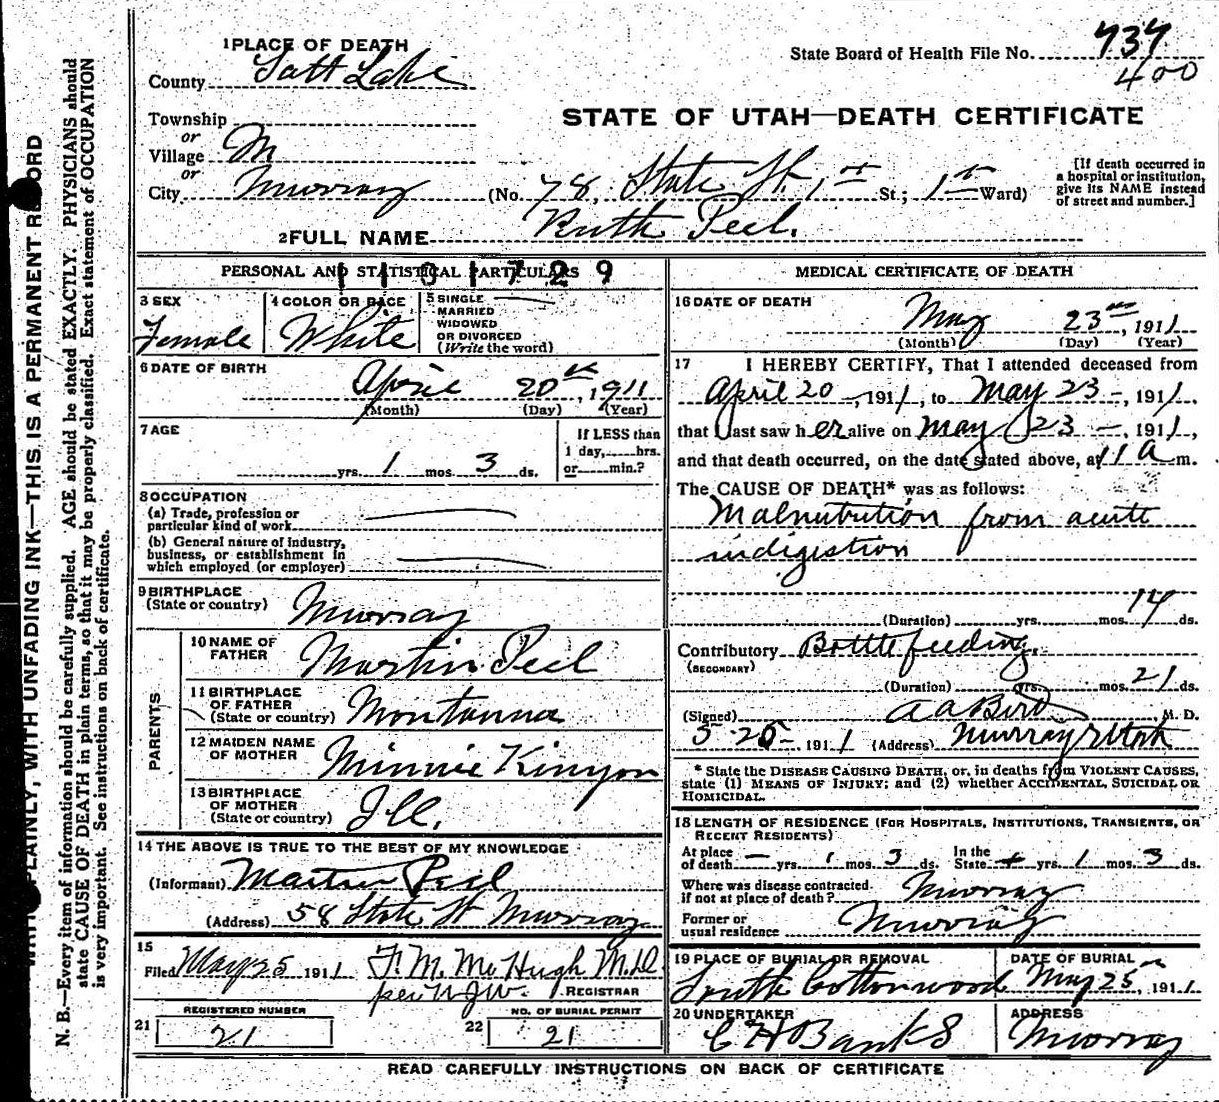 WRITE PLAINLY, WITH UNFADING INK—THIS IS A PERMANENT RECORD
N. B.—Every item of information should be carefully supplied. AGE should be stated EXACTLY. PHYSICIANS should
state CAUSE OF DEATH in plain terms, so that it may be properly classified. Exact statement of OCCUPATION
is very important. See instructions on back of certificate.
1 PLACE OF DEATH
County Salt Lake
State Board of Health File No. 737
400
STATE OF UTAH—DEATH CERTIFICATE
Township
or
Village M
or
City Murray (No. 78, State St. 1st St.; 1st Ward)
[If death occurred in
a hospital or institution,
give its NAME instead
of street and number.]
2 FULL NAME Ruth Peel.
PERSONAL AND STATISTICAL PARTICULARS
1101729
3 SEX
Female
4 COLOR OR RACE
White
5 SINGLE
MARRIED
WIDOWED
OR DIVORCED
(Write the word)
6 DATE OF BIRTH
April 20th, 1911
(Month) (Day) (Year)
7 AGE
yrs. 1 mos. 3 ds.
If LESS than
1 day, hrs.
or min.?
8 OCCUPATION
(a) Trade, profession or
particular kind of work
(b) General nature of industry,
business, or establishment in
which employed (or employer)
9 BIRTHPLACE
(State or country) Murray
PARENTS
10 NAME OF
FATHER Martin Peel
11 BIRTHPLACE
OF FATHER
(State or country) Montanna
12 MAIDEN NAME
OF MOTHER Minnie Kinyon
13 BIRTHPLACE
OF MOTHER
(State or country) Ill.
14 THE ABOVE IS TRUE TO THE BEST OF MY KNOWLEDGE
(Informant) Martin Peel
(Address) 58 State St Murray
15
Filed May 25 1911 F. M. McHugh M.D
per N.J.W. REGISTRAR
REGISTERED NUMBER
21 21
NO. OF BURIAL PERMIT
22 21
MEDICAL CERTIFICATE OF DEATH
16 DATE OF DEATH
May 23rd, 1911
(Month) (Day) (Year)
17 I HEREBY CERTIFY, That I attended deceased from
April 20 -, 1911, to May 23 -, 1911,
that I last saw her alive on May 23 -, 1911,
and that death occurred, on the date stated above, at 11 a m.
The CAUSE OF DEATH* was as follows:
Malnutrition from acute
indigestion
(Duration) yrs. mos. 14 ds.
Contributory Bottle feeding.
(SECONDARY)
(Duration) yrs. mos. 21 ds.
(Signed) A A Bird M. D.
5 25 1911 (Address) Murray Utah
* State the DISEASE CAUSING DEATH, or, in deaths from VIOLENT CAUSES,
state (1) MEANS OF INJURY; and (2) whether ACCIDENTAL, SUICIDAL OR
HOMICIDAL.
18 LENGTH OF RESIDENCE (FOR HOSPITALS, INSTITUTIONS, TRANSIENTS, OR
RECENT RESIDENTS)
At place
of death — yrs. 1 mos. 3 ds.
In the
State yrs. 1 mos. 3 ds.
Where was disease contracted.
if not at place of death? Murray
Former or
usual residence Murray
19 PLACE OF BURIAL OR REMOVAL
South Cottonwood
DATE OF BURIAL
May 25th, 1911.
20 UNDERTAKER
C H Banks
ADDRESS
Murray
READ CAREFULLY INSTRUCTIONS ON BACK OF CERTIFICATE